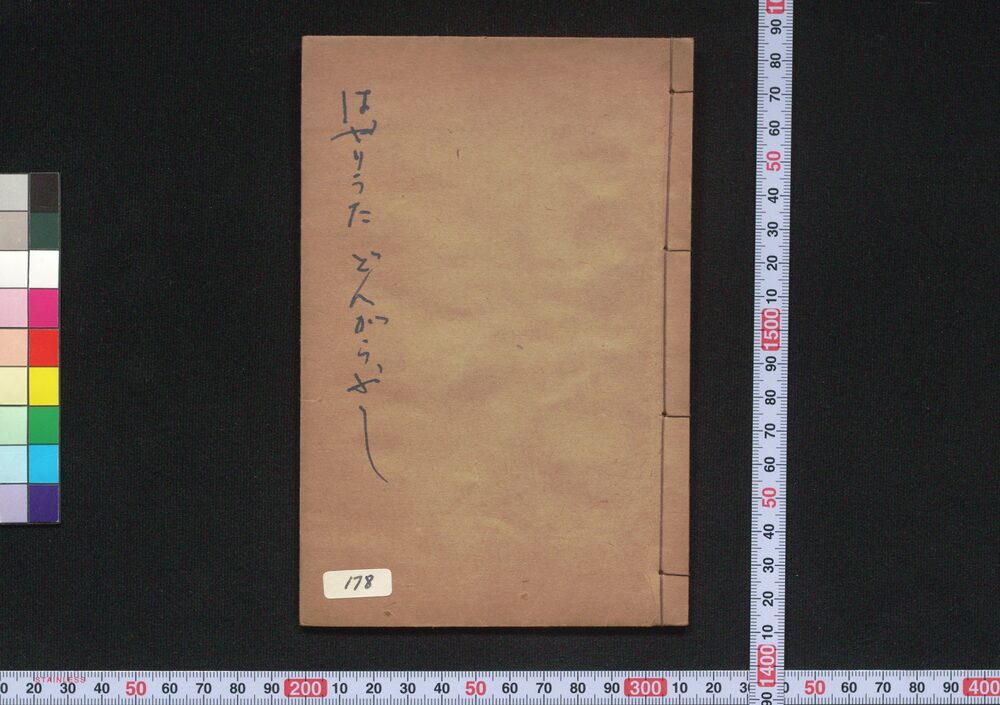 はやりうた どんがらがし
178
STAINLESS
10
90
80
70
60
50
40
30
20
10
1500
90
80
70
60
50
40
30
20
10
1400
90
0 20 30 40 50 60 70 80 90 200 10 20 30 40 50 60 70 80 90 300 10 20 3 0 50 60 70 80 90 400